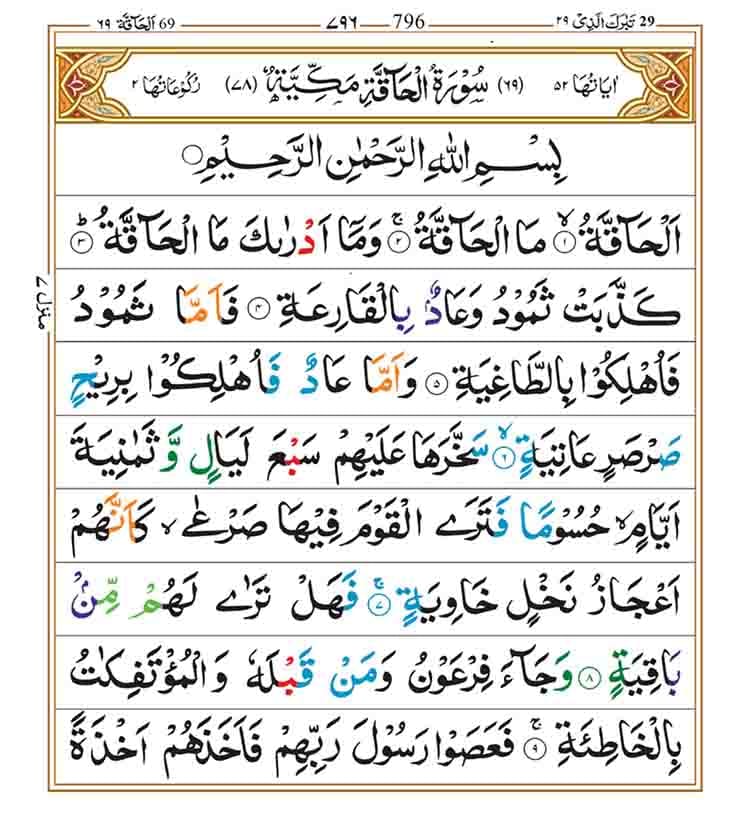 29 تَبٰرَكَ الَّذِىۡ ٢٩
796 ٧٩٦
69 اَلۡحَآقَّة ٦٩
اٰيَاتُهَا ٥٢ (٦٩) سُوۡرَةُ الۡحَآقَّةِ مَكِّيَّةٌ (٧٨) رُكُوۡعَاتُهَا ٢
بِسۡمِ اللّٰهِ الرَّحۡمٰنِ الرَّحِيۡمِ
اَلۡحَآقَّةُ ۙ‏ ١ مَا الۡحَآقَّةُ‌ ۚ‏ ٢ وَمَاۤ اَدۡرٰٮكَ مَا الۡحَآقَّةُ ؕ‏ ٣
كَذَّبَتۡ ثَمُوۡدُ وَعَادٌۢ بِالۡقَارِعَةِ ٤ فَاَمَّا ثَمُوۡدُ
فَاُهۡلِكُوۡا بِالطَّاغِيَةِ ٥ وَاَمَّا عَادٌ فَاُهۡلِكُوۡا بِرِيۡحٍ
صَرۡصَرٍ عَاتِيَةٍ ۙ‏ ٦ سَخَّرَهَا عَلَيۡهِمۡ سَبۡعَ لَيَالٍ وَّثَمٰنِيَةَ
اَيَّامٍۙ حُسُوۡمًا فَتَرَى الۡقَوۡمَ فِيۡهَا صَرۡعٰىۙ كَاَنَّهُمۡ
اَعۡجَازُ نَخۡلٍ خَاوِيَةٍ‌ ۚ‏ ٧ فَهَلۡ تَرٰى لَهُمۡ مِّنۡۢ
بَاقِيَةٍ ٨ وَجَآءَ فِرۡعَوۡنُ وَمَنۡ قَبۡلَهٗ وَالۡمُؤۡتَفِكٰتُ
بِالۡخَاطِئَةِ‌ ۚ‏ ٩ فَعَصَوۡا رَسُوۡلَ رَبِّهِمۡ فَاَخَذَهُمۡ اَخۡذَةً
منزل ٧